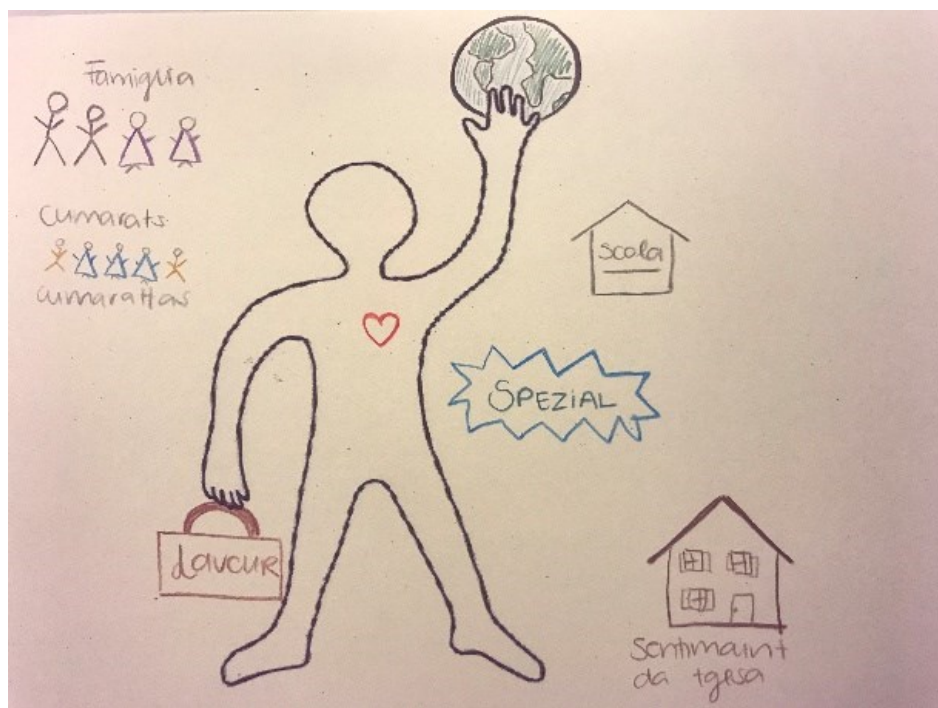 Famiglia
cumarats
cumarattas
scola
SPEZIAL
Lavur
sentimaint
da tgesa